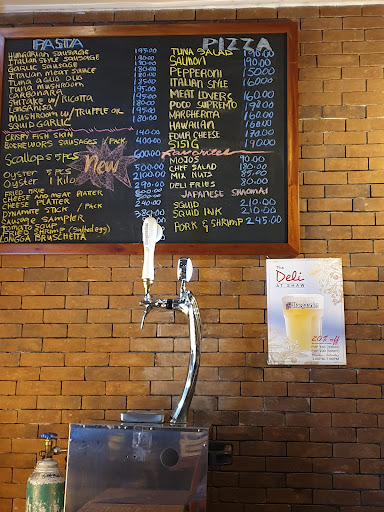 PASTA
HUNGARIAN SAUSAGE 195.00
ITALIAN STYLE SAUSAGE 190.00
GARLIC SAUSAGE 180.00
ITALIAN MEAT SAUCE
TUNA AGLIO OLIO
TUNA MUSHROOM
CARBONARA
SHITAKE W/ RICOTTA
LONGANISA
MUSHROOM W/ TRUFFLE OIL
SQUID GARLIC 180.00
CRISPY FISH SKIN 140.00
BOEREWORS SAUSAGES / PACK 400.00
SCALLOPS 5 PCS
New
OYSTER 5 PCS
OYSTER 1 KILO 2100.00
DRIED TRIO 290.00
CHEESE AND MEAT PLATTER
CHEESE PLATTER 240.00
DYNAMITE STICK / PACK
SAUSAGE SAMPLER
TOMATO SOUP
FRIED SHRIMP (Salted egg)
LONGGA BRUSCHETTA
PIZZA
TUNA SALAD 190.00
SALMON 190.00
PEPPERONI 150.00
ITALIAN STYLE 160.00
MEAT LOVERS 160.00
POCO SUPREMO 190.00
MARGHERITA 160.00
HAWAIIAN 160.00
FOUR CHEESE 170.00
SISIG 190.00
Favorites
MOJOS 90.00
CHEF SALAD 180.00
MIX NUTS 85.00
DELI FRIES 80.00
JAPANESE SHAOMAI
SQUID 210.00
SQUID INK 210.00
PORK & SHRIMP 245.00
THE
Deli
AT SHAW
Hoegaarden
20% off